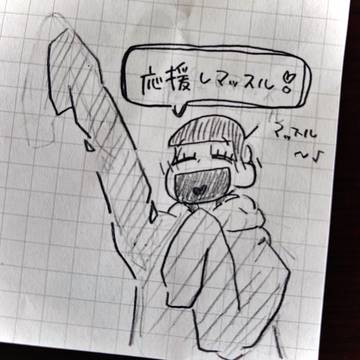 応援しマッスル!
マッスル
〜♪